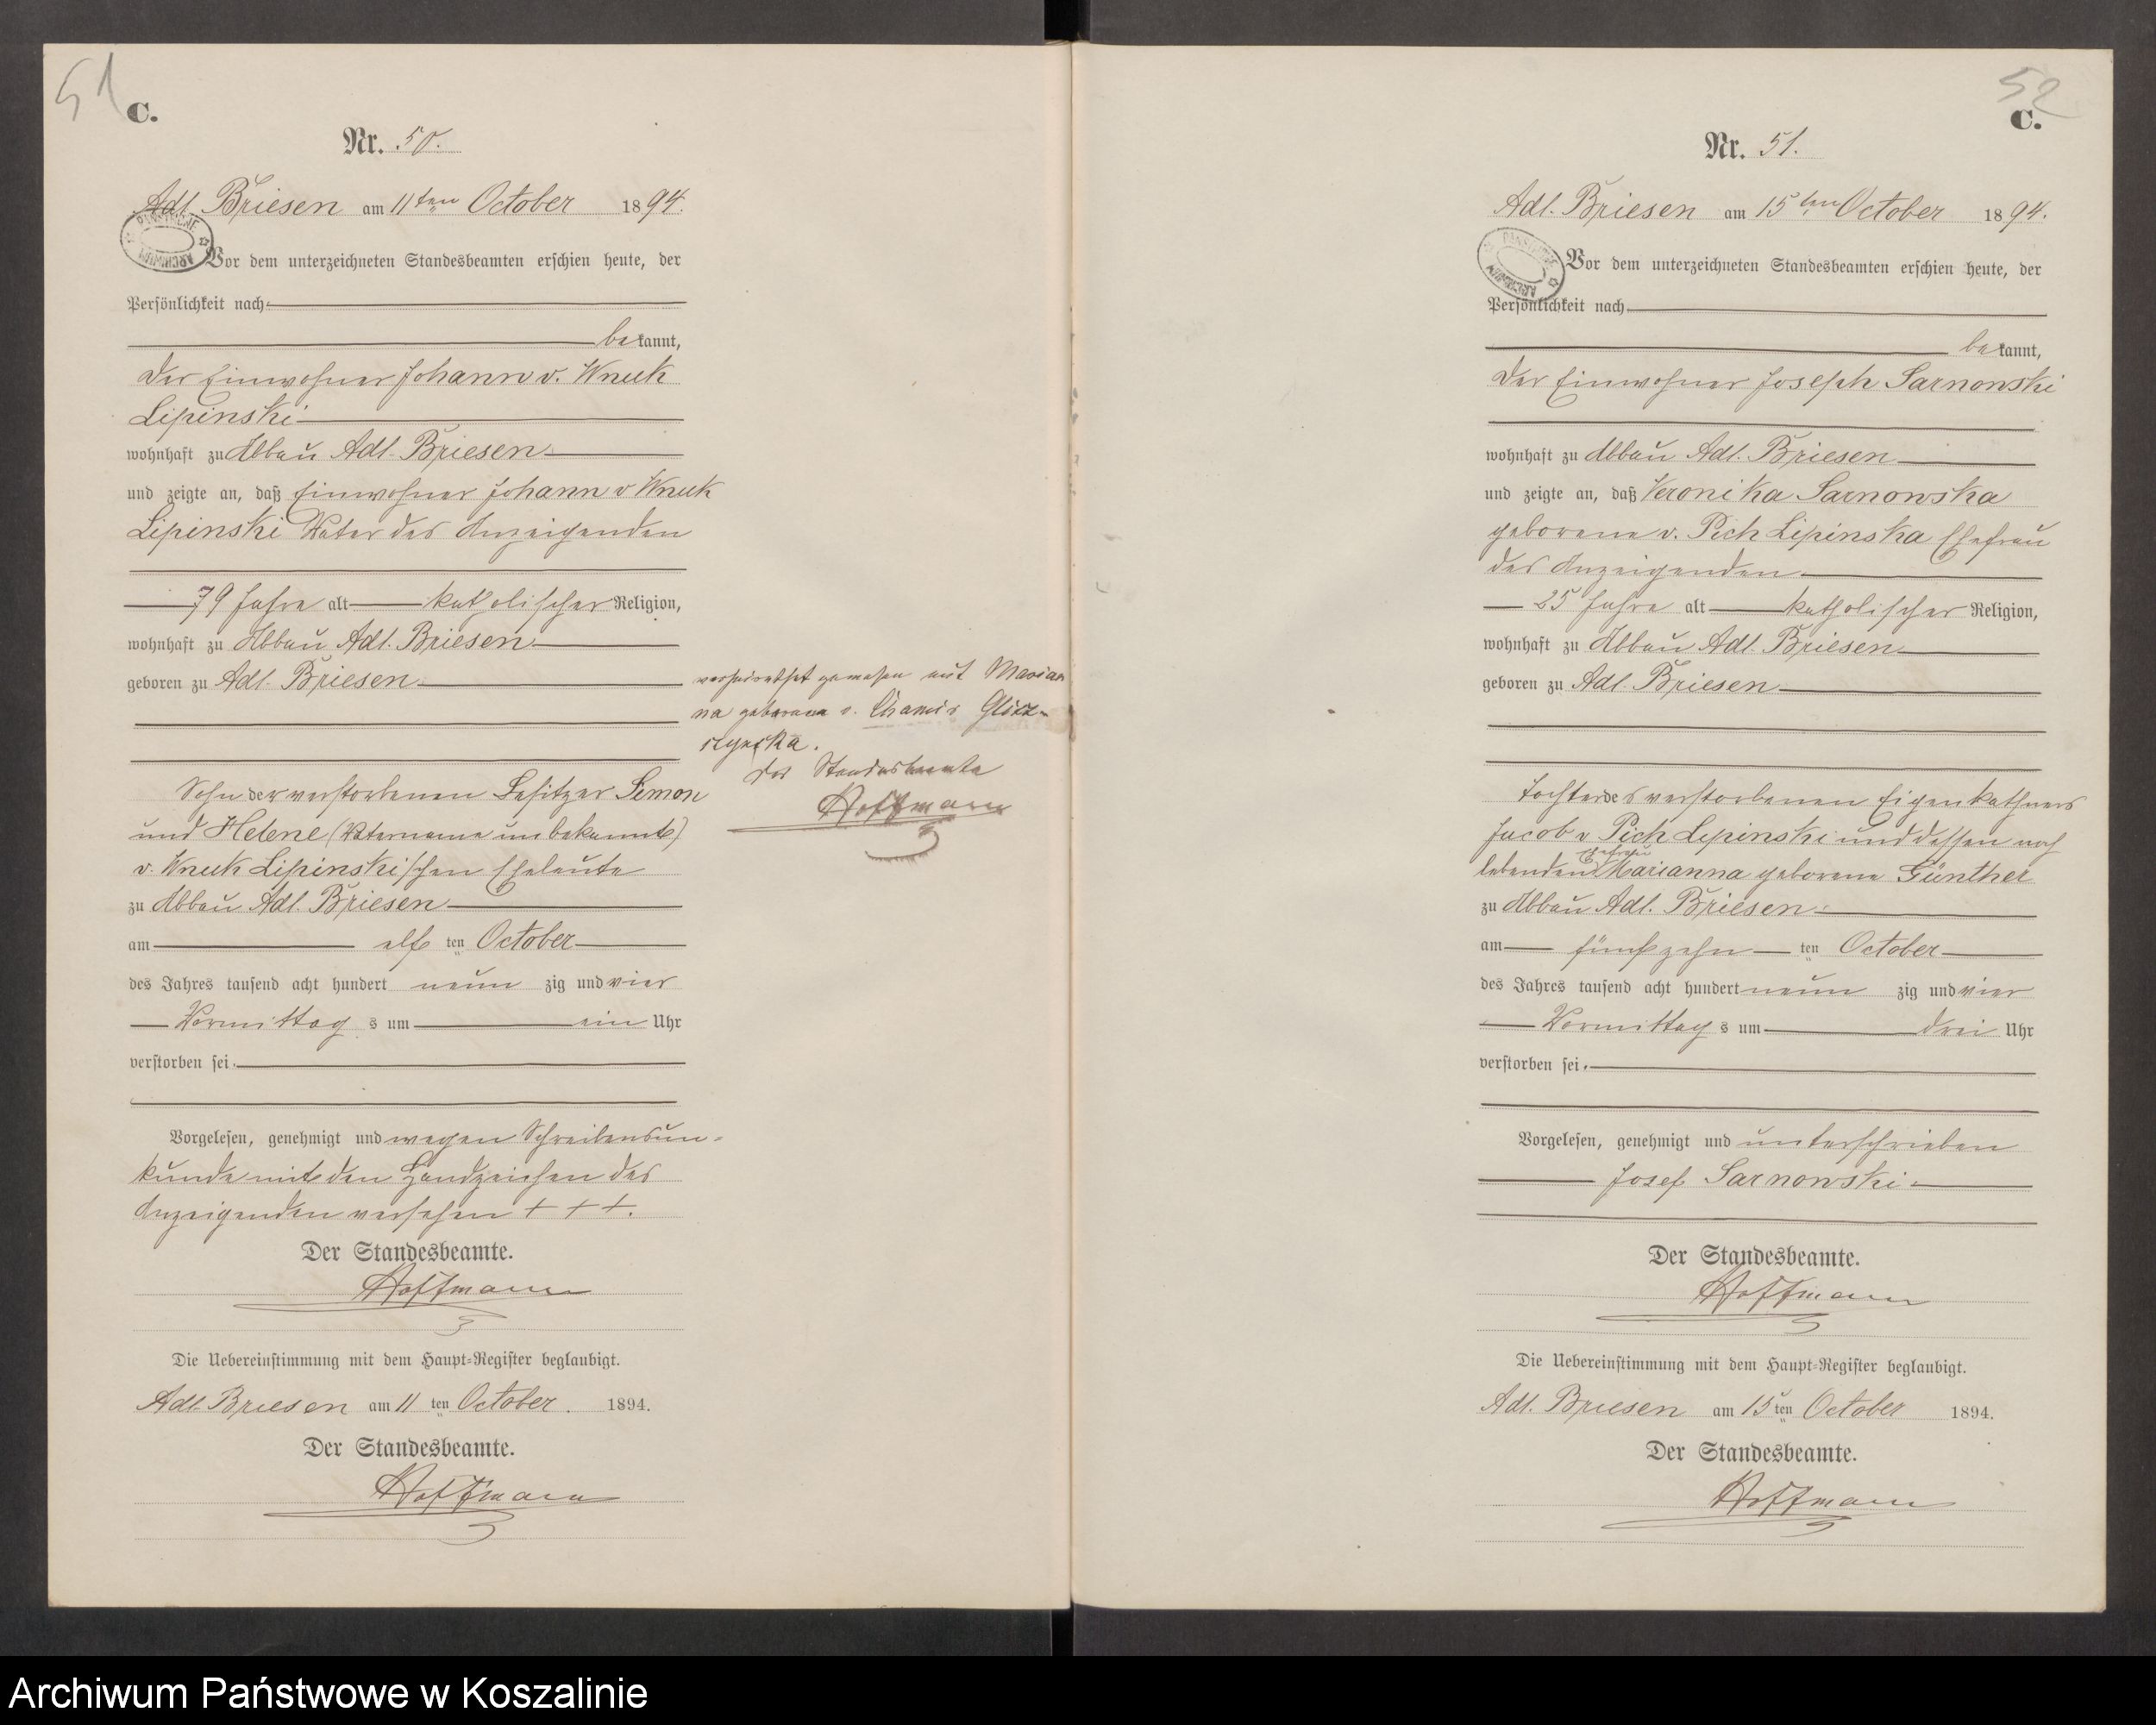 51
C.
Nr. 50.
Adl. Briesen am 11ten October 1894.
Vor dem unterzeichneten Standesbeamten erschien heute, der
Persönlichkeit nach
bekannt,
der Einwohner Johann v. Wnuk
Lipinski
wohnhaft zu Abbau Adl. Briesen
und zeigte an, daß Einwohner Johann v Wnuk
Lipinski Vater des Anzeigenden
79 Jahre alt katholischer Religion,
wohnhaft zu Abbau Adl. Briesen
geboren zu Adl. Briesen
verheirathet gewesen mit Marian
na geborene v.
Der Standesbeamte
Hoffmann
Sohn der verstorbenen Besitzer Simon
und Helene (Vatername unbekannt)
v. Wnuk Lipinski'schen Eheleute
zu Abbau Adl. Briesen
am elf ten October
des Jahres tausend acht hundert neun zig und vier
Vormittag s um ein Uhr
verstorben sei.
Vorgelesen, genehmigt und wegen Schreibensun-
kunde mit den Handzeichen des
Anzeigenden versehen + + +.
Der Standesbeamte.
Hoffmann
Die Uebereinstimmung mit dem Haupt-Register beglaubigt.
Adl. Briesen am 11 ten October. 1894.
Der Standesbeamte.
Hoffmann
52
C.
Nr. 51.
Adl. Briesen am 15ten October 1894.
Vor dem unterzeichneten Standesbeamten erschien heute, der
Persönlichkeit nach
bekannt,
der Einwohner Joseph Sarnowski
wohnhaft zu Abbau Adl. Briesen
und zeigte an, daß Veronika Sarnowska
geborene v. Pich Lipinska Ehefrau
des Anzeigenden
25 Jahre alt katholischer Religion,
wohnhaft zu Abbau Adl. Briesen
geboren zu Adl. Briesen
Tochter des verstorbenen Eigenkathners
Jacob v Pich Lipinski und dessen noch
Ehefrau
lebenden Marianna geborene Günther
zu Abbau Adl. Briesen
am fünfzehn ten October
des Jahres tausend acht hundert neun zig und vier
Vormittag s um drei Uhr
verstorben sei.
Vorgelesen, genehmigt und unterschrieben
Josef Sarnowski
Der Standesbeamte.
Hoffmann
Die Uebereinstimmung mit dem Haupt-Register beglaubigt.
Adl. Briesen am 15 ten October 1894.
Der Standesbeamte.
Hoffmann
Archiwum Państwowe w Koszalinie